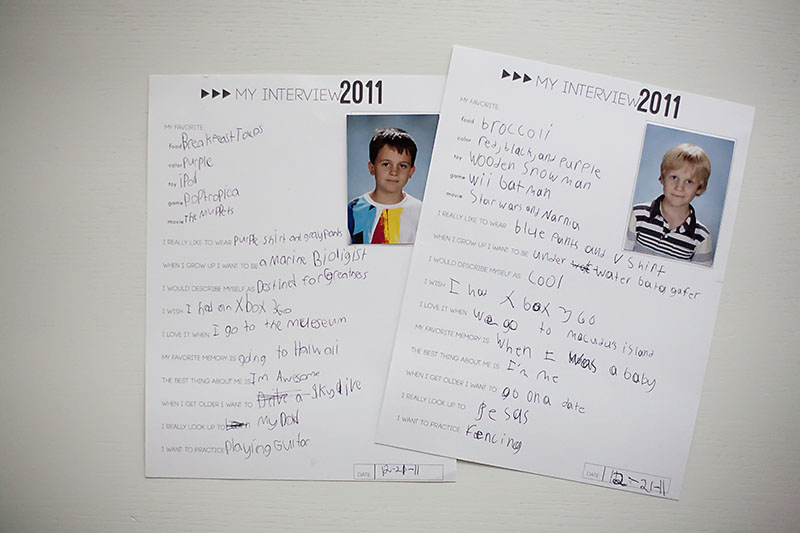 ▶▶▶ MY INTERVIEW 2011
MY FAVORITE
food BreakfeastTacos
color Purple
toy iPod
game Poptropica
movie The Muppets
I REALLY LIKE TO WEAR Purple shirt and gray pants
WHEN I GROW UP I WANT TO BE a Marine Bioligist
I WOULD DESCRIBE MYSELF AS Destined for Greatness
I WISH I had an X box 360
I LOVE IT WHEN I go to the museseum
MY FAVORITE MEMORY IS going to Haiwaii
THE BEST THING ABOUT ME IS I'm Awesome
WHEN I GET OLDER I WANT TO a-Skydive
I REALLY LOOK UP TO My Dad
I WANT TO PRACTICE Playing Guitar
DATE 12-21-11
▶▶▶ MY INTERVIEW 2011
MY FAVORITE
food broccoli
color red, black, and purple
toy Wooden Snowman
game wii batman
movie Star wars and Narnia
I REALLY LIKE TO WEAR blue pants and V Shirt
WHEN I GROW UP I WANT TO BE under water
I WOULD DESCRIBE MYSELF AS cool
I WISH I had X box 360
I LOVE IT WHEN We go to island
MY FAVORITE MEMORY IS When I was a baby
THE BEST THING ABOUT ME IS I'm me
WHEN I GET OLDER I WANT TO go on a date
I REALLY LOOK UP TO Jesas
I WANT TO PRACTICE Fencing
DATE 12-21-11